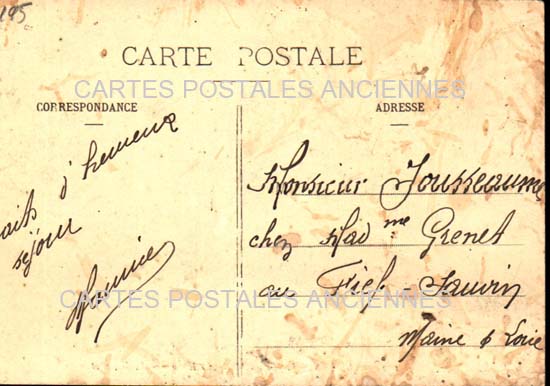 195
CARTE POSTALE
CARTES POSTALES ANCIENNES
CORRESPONDANCE
ADRESSE
d'heureux
séjour
Monsieur Jousseaume
chez Mad me Grenet
au Fief-Sauvin
CARTES POSTALES ANCIENNES
Maine & Loire